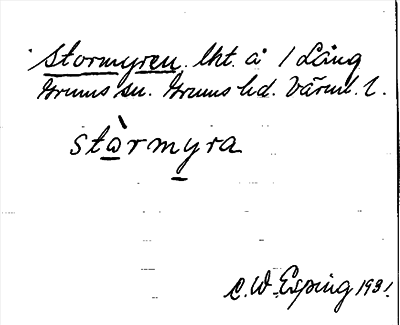 Stormyren. lht. å / Lång
Grums sn. Grums hd. Värml. l.
stàrmyra
C. W. Esping 1931.